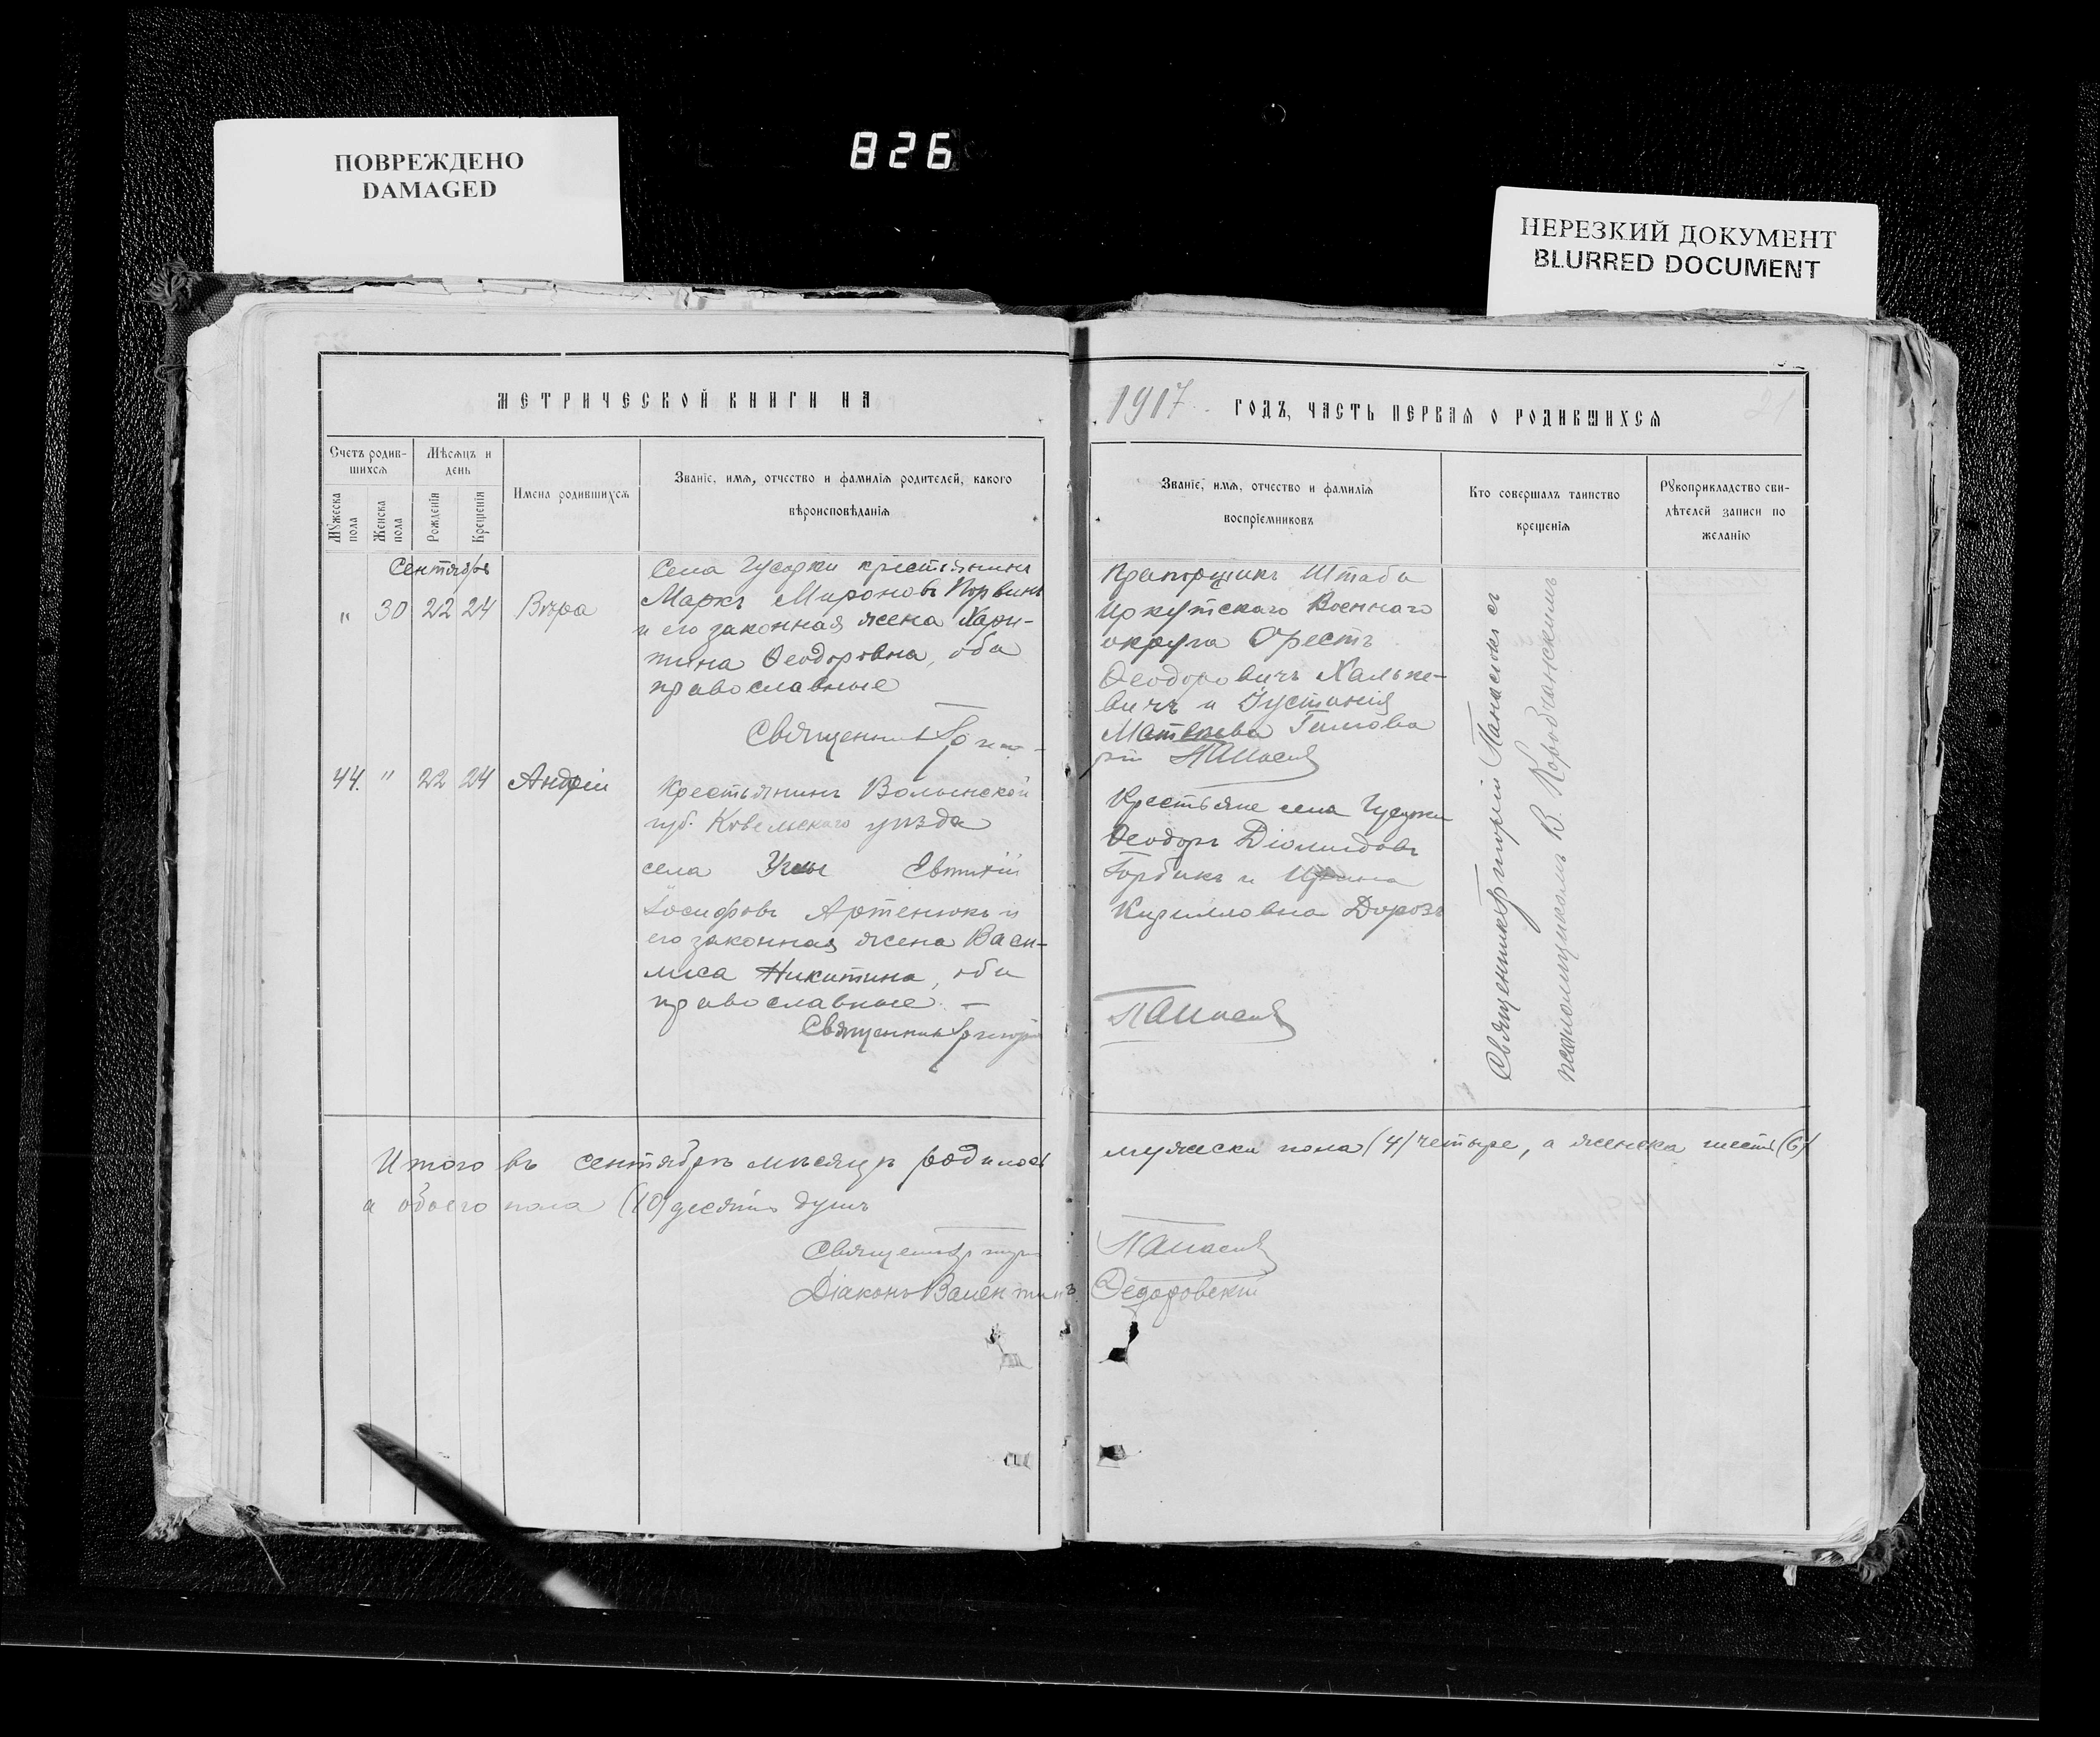 ПОВРЕЖДЕНО
DAMAGED
826
НЕРЕЗКИЙ ДОКУМЕНТ
BLURRED DOCUMENT
МЕТРИЧЕСКОЙ КНИГИ НА
1917 ГОДЪ, ЧАСТЬ ПЕРВАЯ О РОДИВШИХСЯ
21
Счетъ родив-
шихся
Мѣсяцъ и
день
Мужеска
пола
Женска
пола
Рожденія
Крещенія
Имена родившихся
Званіе, имя, отчество и фамилія родителей, какого
вѣроисповѣданія
Званіе, имя, отчество и фамилія
воспріемниковъ
Кто совершалъ таинство
крещенія
Рукоприкладство сви-
дѣтелей записи по
желанію
Сентябрь
" 30 22 24 Вѣра
Села крестьянинъ
Маркъ Мироновъ
и его законная жена Хари-
тина Ѳеодоровна, оба
православные
Священникъ Григо-
Прапорщикъ Штаба
Иркутскаго Военнаго
округа Орестъ
Ѳеодоровичъ Халъке-
вичъ и Іустинія
Матвѣева
рій Панасюк
44. " 22 24 Андрій
Крестьянинъ Волынской
губ. Ковельскаго уѣзда
села Евтихій
Іосифовъ Артенюкъ и
его законная жена Васи-
лиса Никитина, оба
православные. —
Священникъ Григорій
Крестьяне села
Ѳеодоръ Діомидовъ
Горбикъ и
Кирилловна
Панасюк
Священникъ Григорій Панасюкъ съ
псаломщикомъ В. Коробчанскимъ
Итого въ сентябрѣ мѣсяцѣ родилось мужеска пола (4) четыре, а женска шесть (6)
а обоего пола (10) десять душъ
Священникъ Григорій Панасюк
Діаконъ Валентинъ Ѳедоровскій